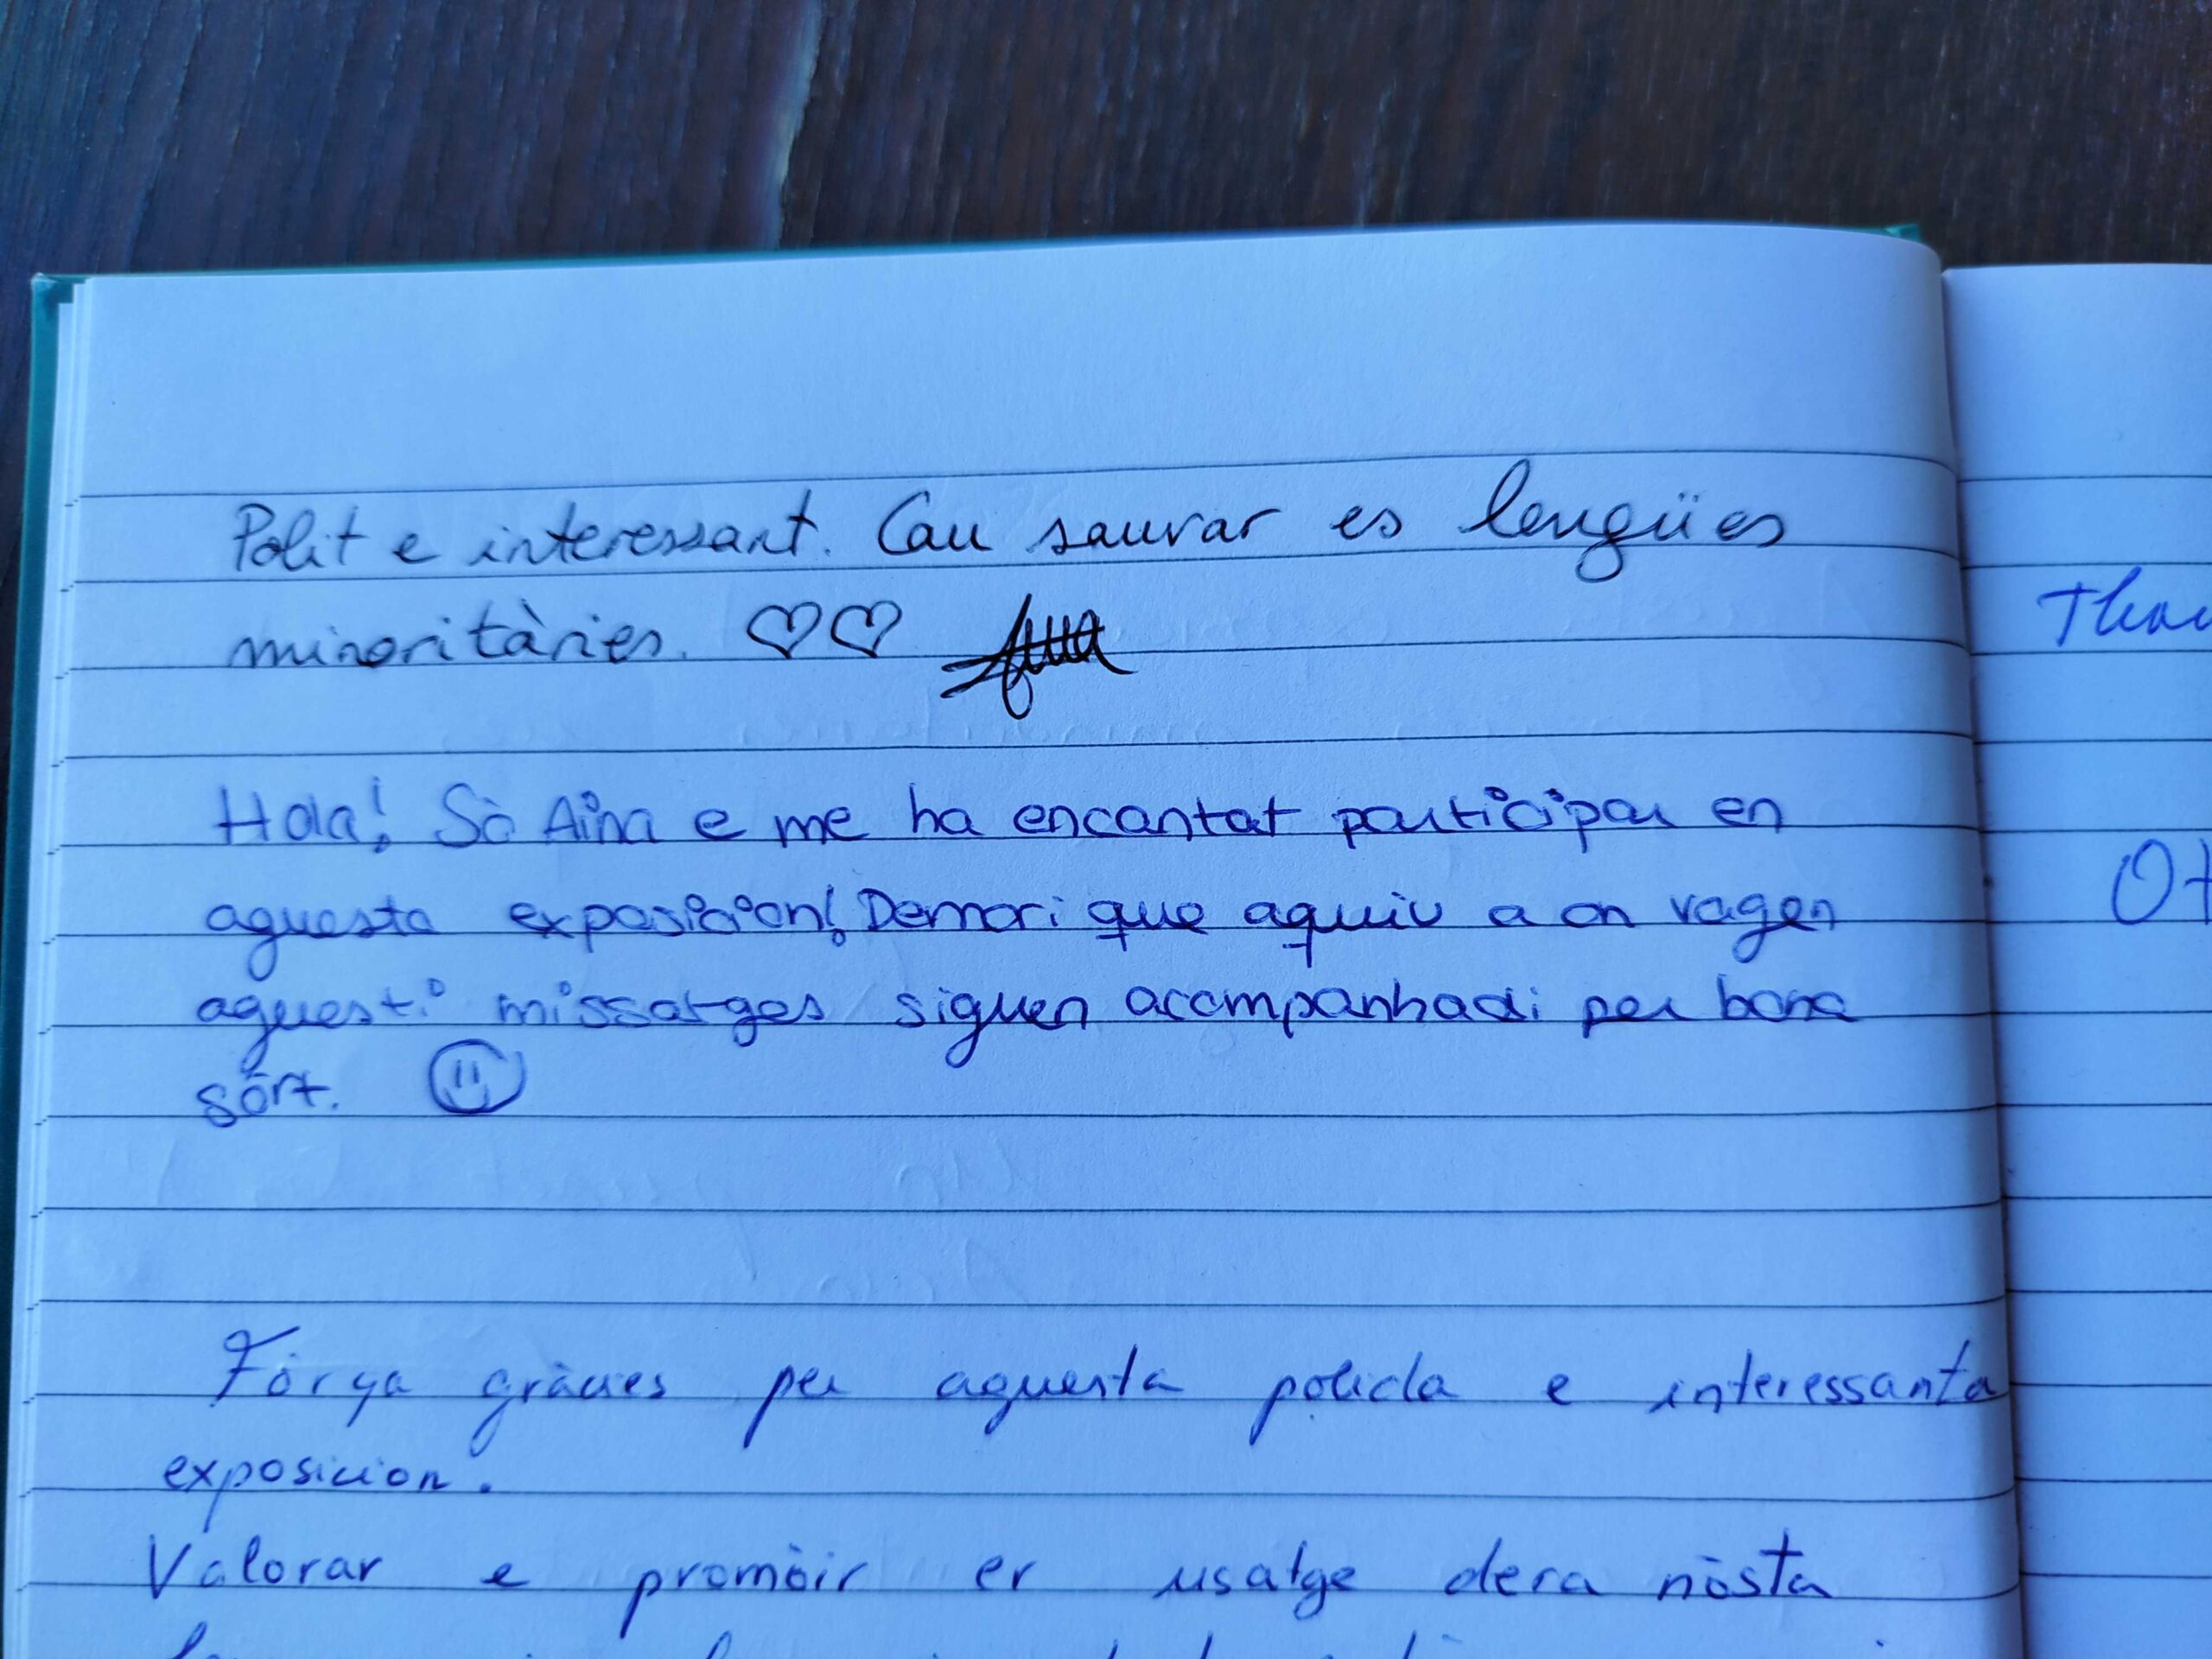 Polit e interessant. Cau sauvar es lengües
minoritàries. ♡♡
Hola! Sò Aina e me ha encantat participar en
aguesta exposicion! Demori que aquiu a on vagen
aguesti missatges siguen acompanhadi per bona
sòrt.
Fòrça gràcies per aguesta polida e interessanta
exposicion.
Valorar e promòir er usatge dera nòsta